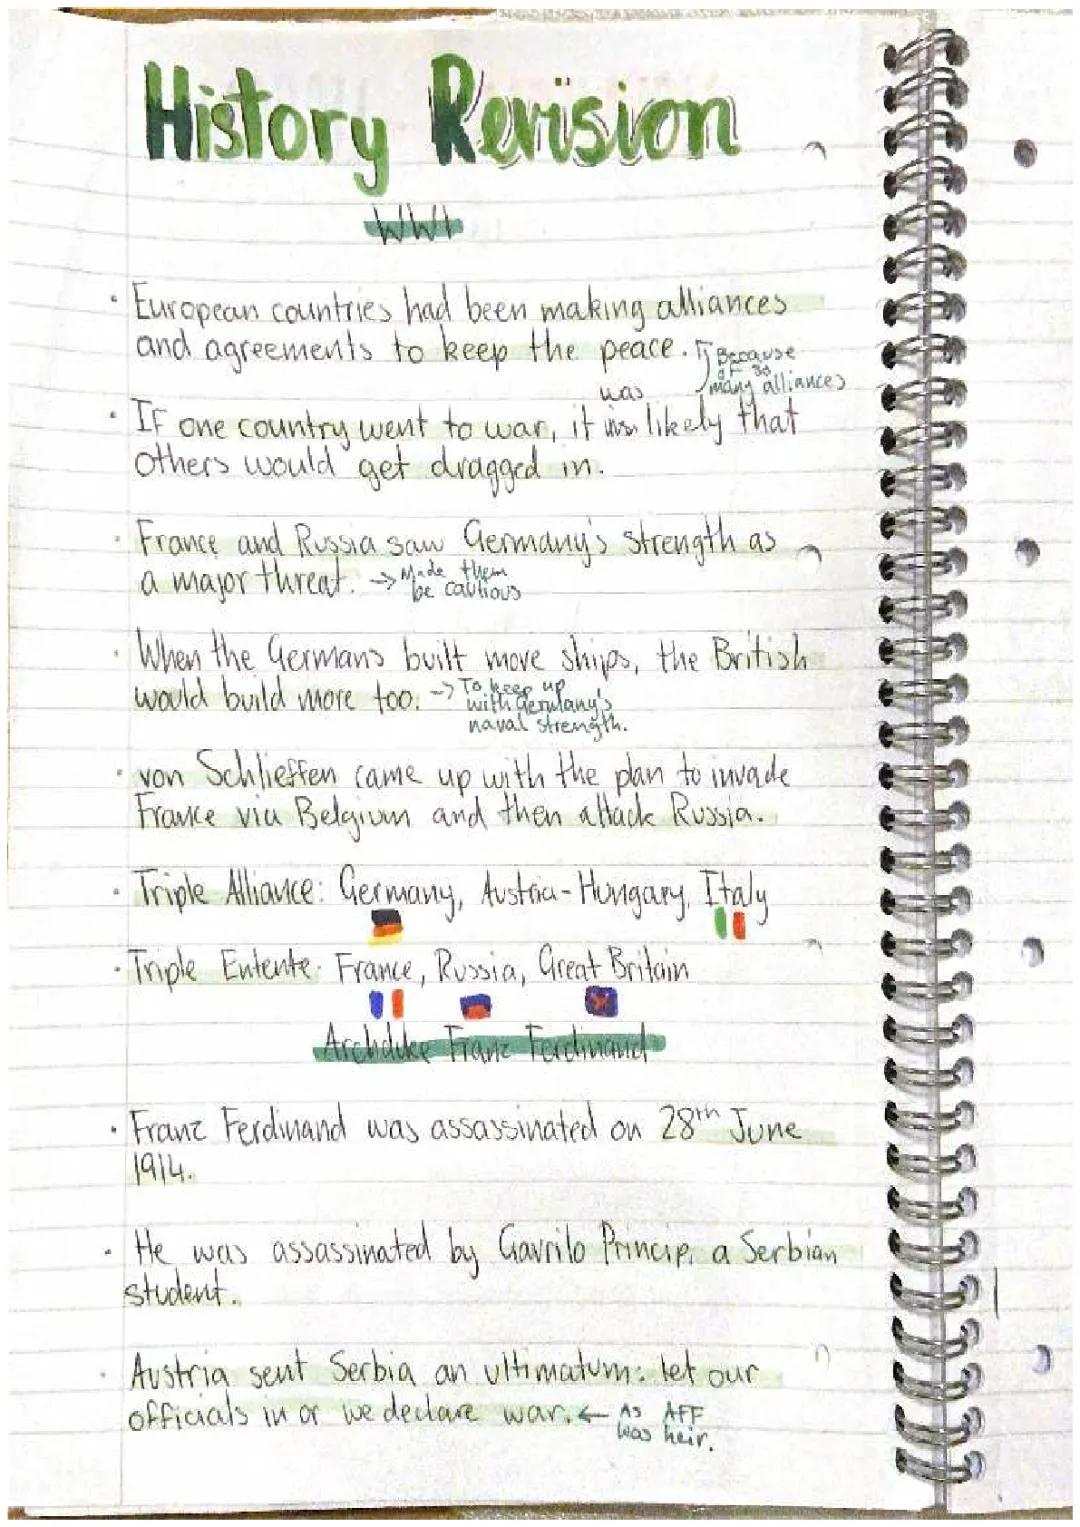 History Revision
WW1
• European countries had been making alliances
and agreements to keep the peace.
Because
of so
many alliances
was
• If one country went to war, it likely that
others would get dragged in.
• France and Russia saw Germany's strength as
a major threat. → Made them
be cautious
• When the Germans built more ships, the British
would build more too. → To keep up
with Germany's
naval strength.
• von Schlieffen came up with the plan to invade
France via Belgium and then attack Russia.
• Triple Alliance: Germany, Austria-Hungary, Italy
• Triple Entente: France, Russia, Great Britain
Archduke Franz Ferdinand
• Franz Ferdinand was assassinated on 28th June
1914.
• He was assassinated by Gavrilo Princip, a Serbian
student.
• Austria sent Serbia an ultimatum: let our
officials in or we declare war. ← As AFF
was heir.